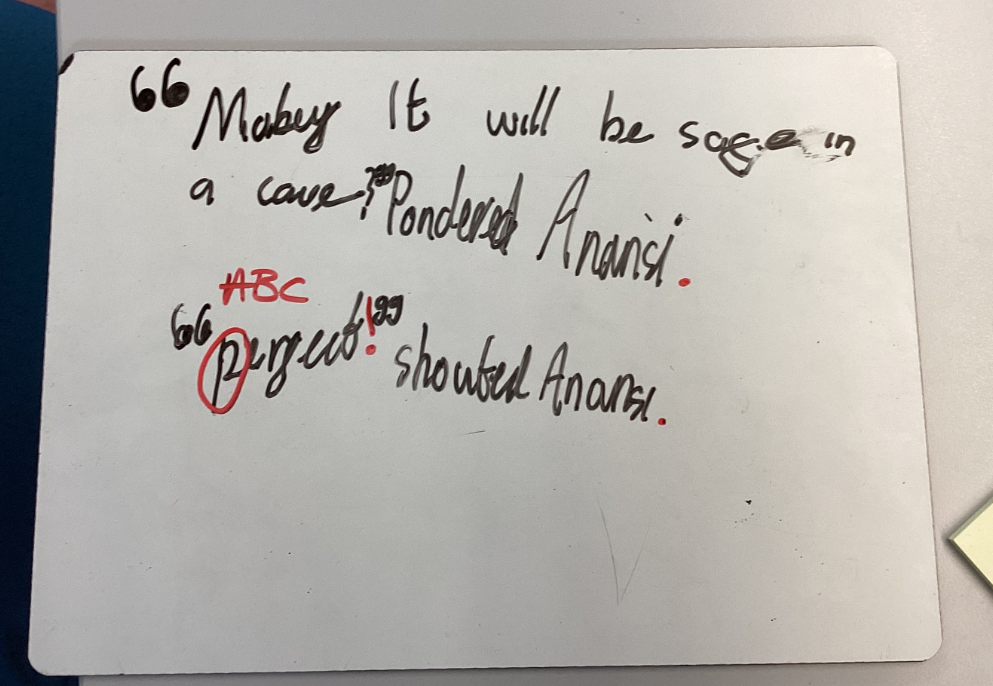 “Mabey It will be safe in
a cave?” Pondered Anansi.
ABC
“perfect!” shouted Anansi.